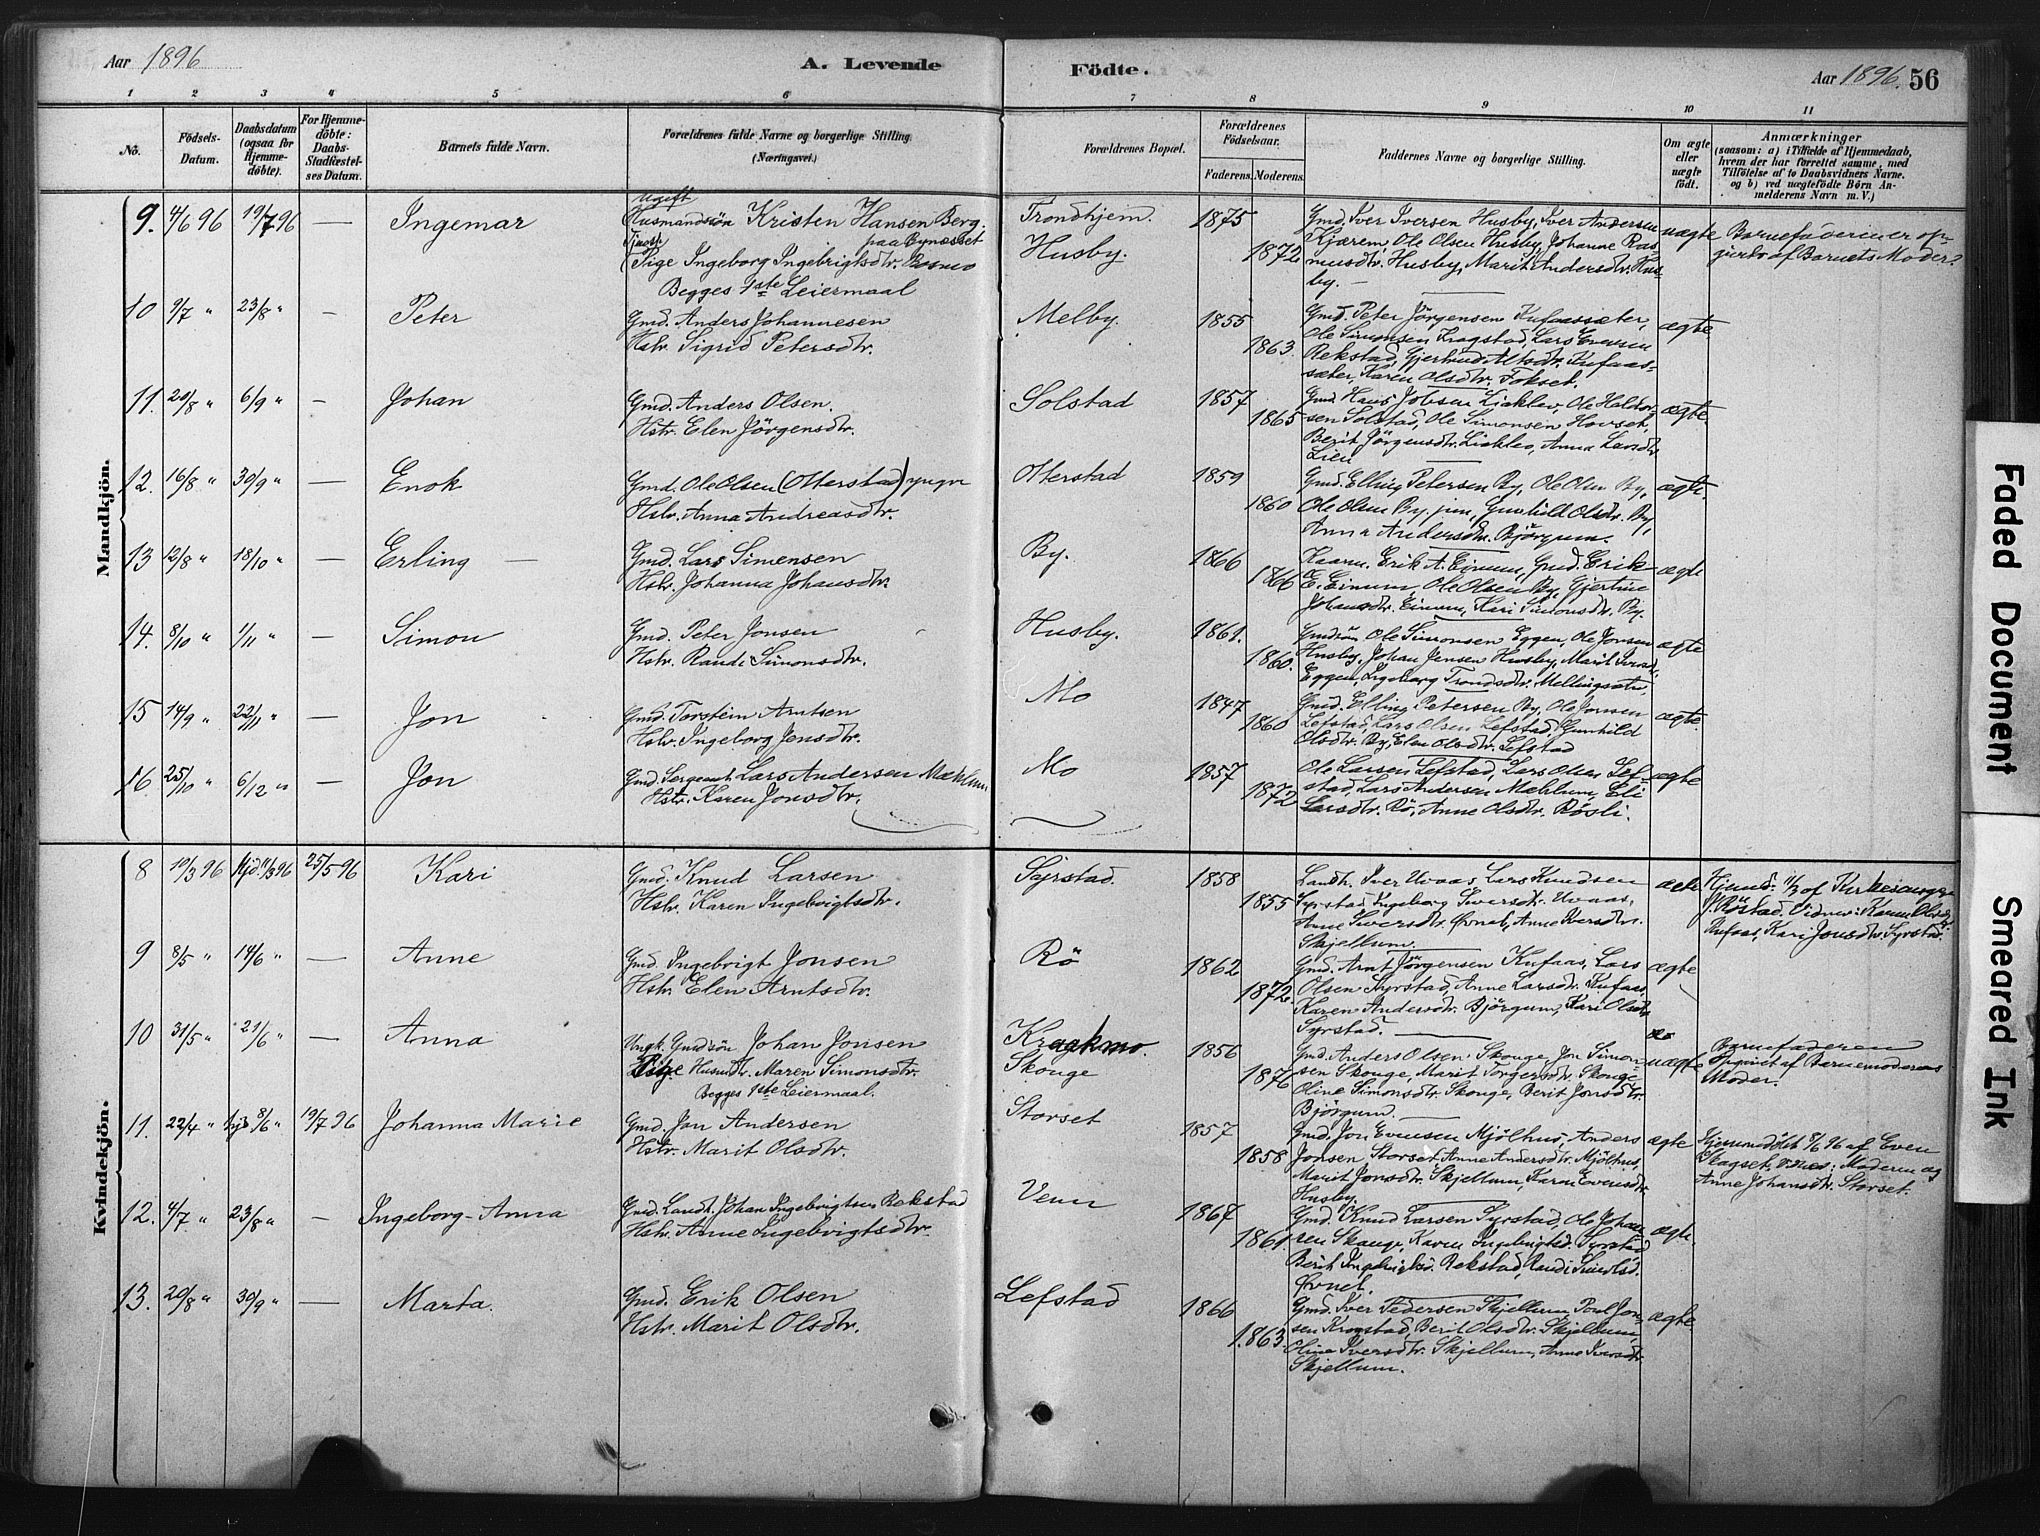 Aar 1896
A. Levende
Födte.
Aar 1896. 56
1 2 3 4 5 6 7 8 9 10 11
No.
Födsels-
Datum.
Daabsdatum
(ogsaa for
Hjemme-
döbte).
For Hjemme-
döbte:
Daabs-
Stadfæstel-
ses Datum.
Barnets fulde Navn.
Forældrenes fulde Navne og borgerlige Stilling.
(Næringsvei.)
Forældrenes Bopæl.
Forældrenes
Födselsaar.
Faderens. Moderens.
Faddernes Navne og borgerlige Stilling.
Om ægte
eller
uægte
födt.
Anmærkninger
(saasom: a) i Tilfælde af Hjemmedaab,
hvem der har forrettet samme, med
Tilföielse af to Daabsvidners Navne.
og b) ved uægtefödte Börn An-
melderens Navn m. V.)
Mandkjön.
9. 4/6 96 19/7 96 — Ingemar
Ugift
Husmandsön Kristen Hansen Berg.
Tjenest. paa Bynesset
Pige Ingeborg Ingebrigtsdtr.
Begges 1ste Leiermaal
Trondhjem. 1875
Husby. 1872.
Gmd. Iver Iversen Husby, Iver Andersen
Kjærem, Ole Olsen Husby, Johanne Ras-
musdtr. Husby, Marit Andersdtr. Hus-
by. —
uægte
Barnefaderen er op-
givet af Barnets Moder.
10 9/7 " 23/8 " — Peter
Gmd. Anders Johannesen
Hstr. Sigrid Petersdtr.
Melby. 1855
1863.
Gmd. Peter Jörgensen Kufaassæter,
Ole Simonsen Krogstad, Lars Evensen
Rekstad, Gjertrud Kufaas-
sæter, Karen Olsdtr. Fokset.
ægte.
11. 20/8 " 6/9 " — Johan
Gmd. Anders Olsen.
Hstr. Elen Jörgensdtr.
Solstad 1857
1865
Gmd Hans Lieklev, Ole Haldor-
sen Solstad, Ole Simonsen Hovset,
Berit Jörgensdtr. Lieklev, Anna Larsdtr.
Lien
ægte.
12. 16/8 " 30/9 " — Enok
Gmd. Ole Olsen (Otterstad) yngre
Hstr. Anna Andreasdtr.
Otterstad 1859
1860
Gmd. Elling Petersen By, Ole Olsen By,
Ole Olsen By, jun, Gunhild Olsdtr. By,
Anna Andersdtr. Björgum.
ægte
13 12/8 " 18/10 " — Erling —
Gmd. Lars Simensen
Hstr. Johanna Johansdtr.
By. 1866
1866
Kaarm. Erik A. Einum, Gmd. Erik
E. Einum, Ole Olsen By, Gjertine
Johansdtr. Einum, Kari Simonsdtr. By.
ægte
14. 8/10 " 1/11 " — Simon
Gmd. Peter Jonsen
Hstr. Randi Simonsdtr.
Husby. 1861.
1860.
Gmdsön Ole Simonsen Eggen, Ole Jonsen
Husby, Johan Jensen Husby, Marit
Eggen, Ingeborg Trondsdtr. Mellingsætr
ægte
15 14/9 " 22/11 " — Jon
Gmd. Torstein Arntsen
Hstr. Ingeborg Jensdtr.
Mo 1847
1860
Gmd. Elling Petersen By, Ole Jonsen
Lefstad, Lars Olsen Lefstad, Gunhild
Olsdtr. By, Elen Olsdtr. Lefstad
ægte.
16. 25/10 " 6/12 " — Jon
Gmd. Sergeant Lars Andersen Mæhlum
Hstr. Karen Jonsdtr.
Mo 1857
1872
Ole Larsen Lefstad, Lars Olsen Lef-
stad, Lars Andersen Mæhlum, Eli
Larsdtr. Rö, Anne Olsdtr. Rösli.
ægte
Kvindekjön.
8 10/3 96 Hjd 11/3 96 25/5 96 Kari
Gmd. Knud Larsen
Hstr. Karen Ingebrigtsdtr.
Syrstad. 1858
1855
Landh. Iver Uvaas, Lars Knudsen
Syrstad, Ingeborg Iversdtr. Uvaas,
Anne Iversdtr. Øvnet, Anne Iversdtr.
Skjellum.
ægte
Hjemd. 11/3 af Kirkesanger
J. Röstad. Vidner: Karen Olsdtr.
Kufaas, Kari Jonsdtr. Syrstad.
9 8/5 " 14/6 " — Anne
Gmd. Ingebrigt Jonsen
Hstr. Elen Arntsdtr.
Rö 1862
1872.
Gmd. Arnt Jörgensen Kufaas, Lars
Olsen Syrstad, Anne Larsdtr. Kufaas,
Karen Andersdtr. Björgum, Kari Olsdtr.
Syrstad.
ægte
10 31/5 " 21/6 " — Anna
Ungk. Gmdsön Johan Jonsen
Pige Husmdtr. Maren Simonsdtr.
Begges 1ste Leiermaal.
Kraakmo. 1856
Skouge 1876
Gmd. Anders Olsen Skouge, Jon Simon-
sen Skouge, Marit Torgersdtr. Skouge,
Oline Simonsdtr. Skouge, Berit Jonsdtr.
Björgum.
uægte
Barnefaderen
opgivet af Barnemoderens
Moder.
11. 22/4 " Hjd 8/6 " 19/7 96 Johanna Marie
Gmd. Jon Andersen
Hstr. Marit Olsdtr.
Storset 1857
1858
Gmd. Jon Evensen Mjölhus, Anders
Jonsen Storset, Anne Andersdtr. Mjölhus,
Marit Jonsdtr. Skjellum, Karen Evensdtr.
Husby.
ægte
Hjemmedöbt 8/6 96 af Even
Skagset. Vidner: Moderen og
Anne Johansdtr. Storset.
12. 4/7 " 23/8 " — Ingeborg-Anna
Gmd. Landh. Johan Ingebrigtsen Rekstad
Hstr. Anne Ingebrigtsdtr.
Venn 1867
1861.
Gmd. Knud Larsen Syrstad, Ole Johan-
sen Skauge, Karen Ingebrigtsd. Syrstad
Berit Ingebrigtsd. Rekstad, Randi
Øvnet.
ægte.
13. 20/8 " 30/9 " — Marta.
Gmd. Erik Olsen
Hstr. Marit Olsdtr.
Lefstad 1866
1863.
Gmd. Iver Pedersen Skjellum, Poul Jon-
sen Krogstad, Berit Olsdtr. Skjellum,
Oline Iversdtr. Skjellum, Anne Iversdtr.
Skjellum.
ægte
Faded Document
Smeared Ink